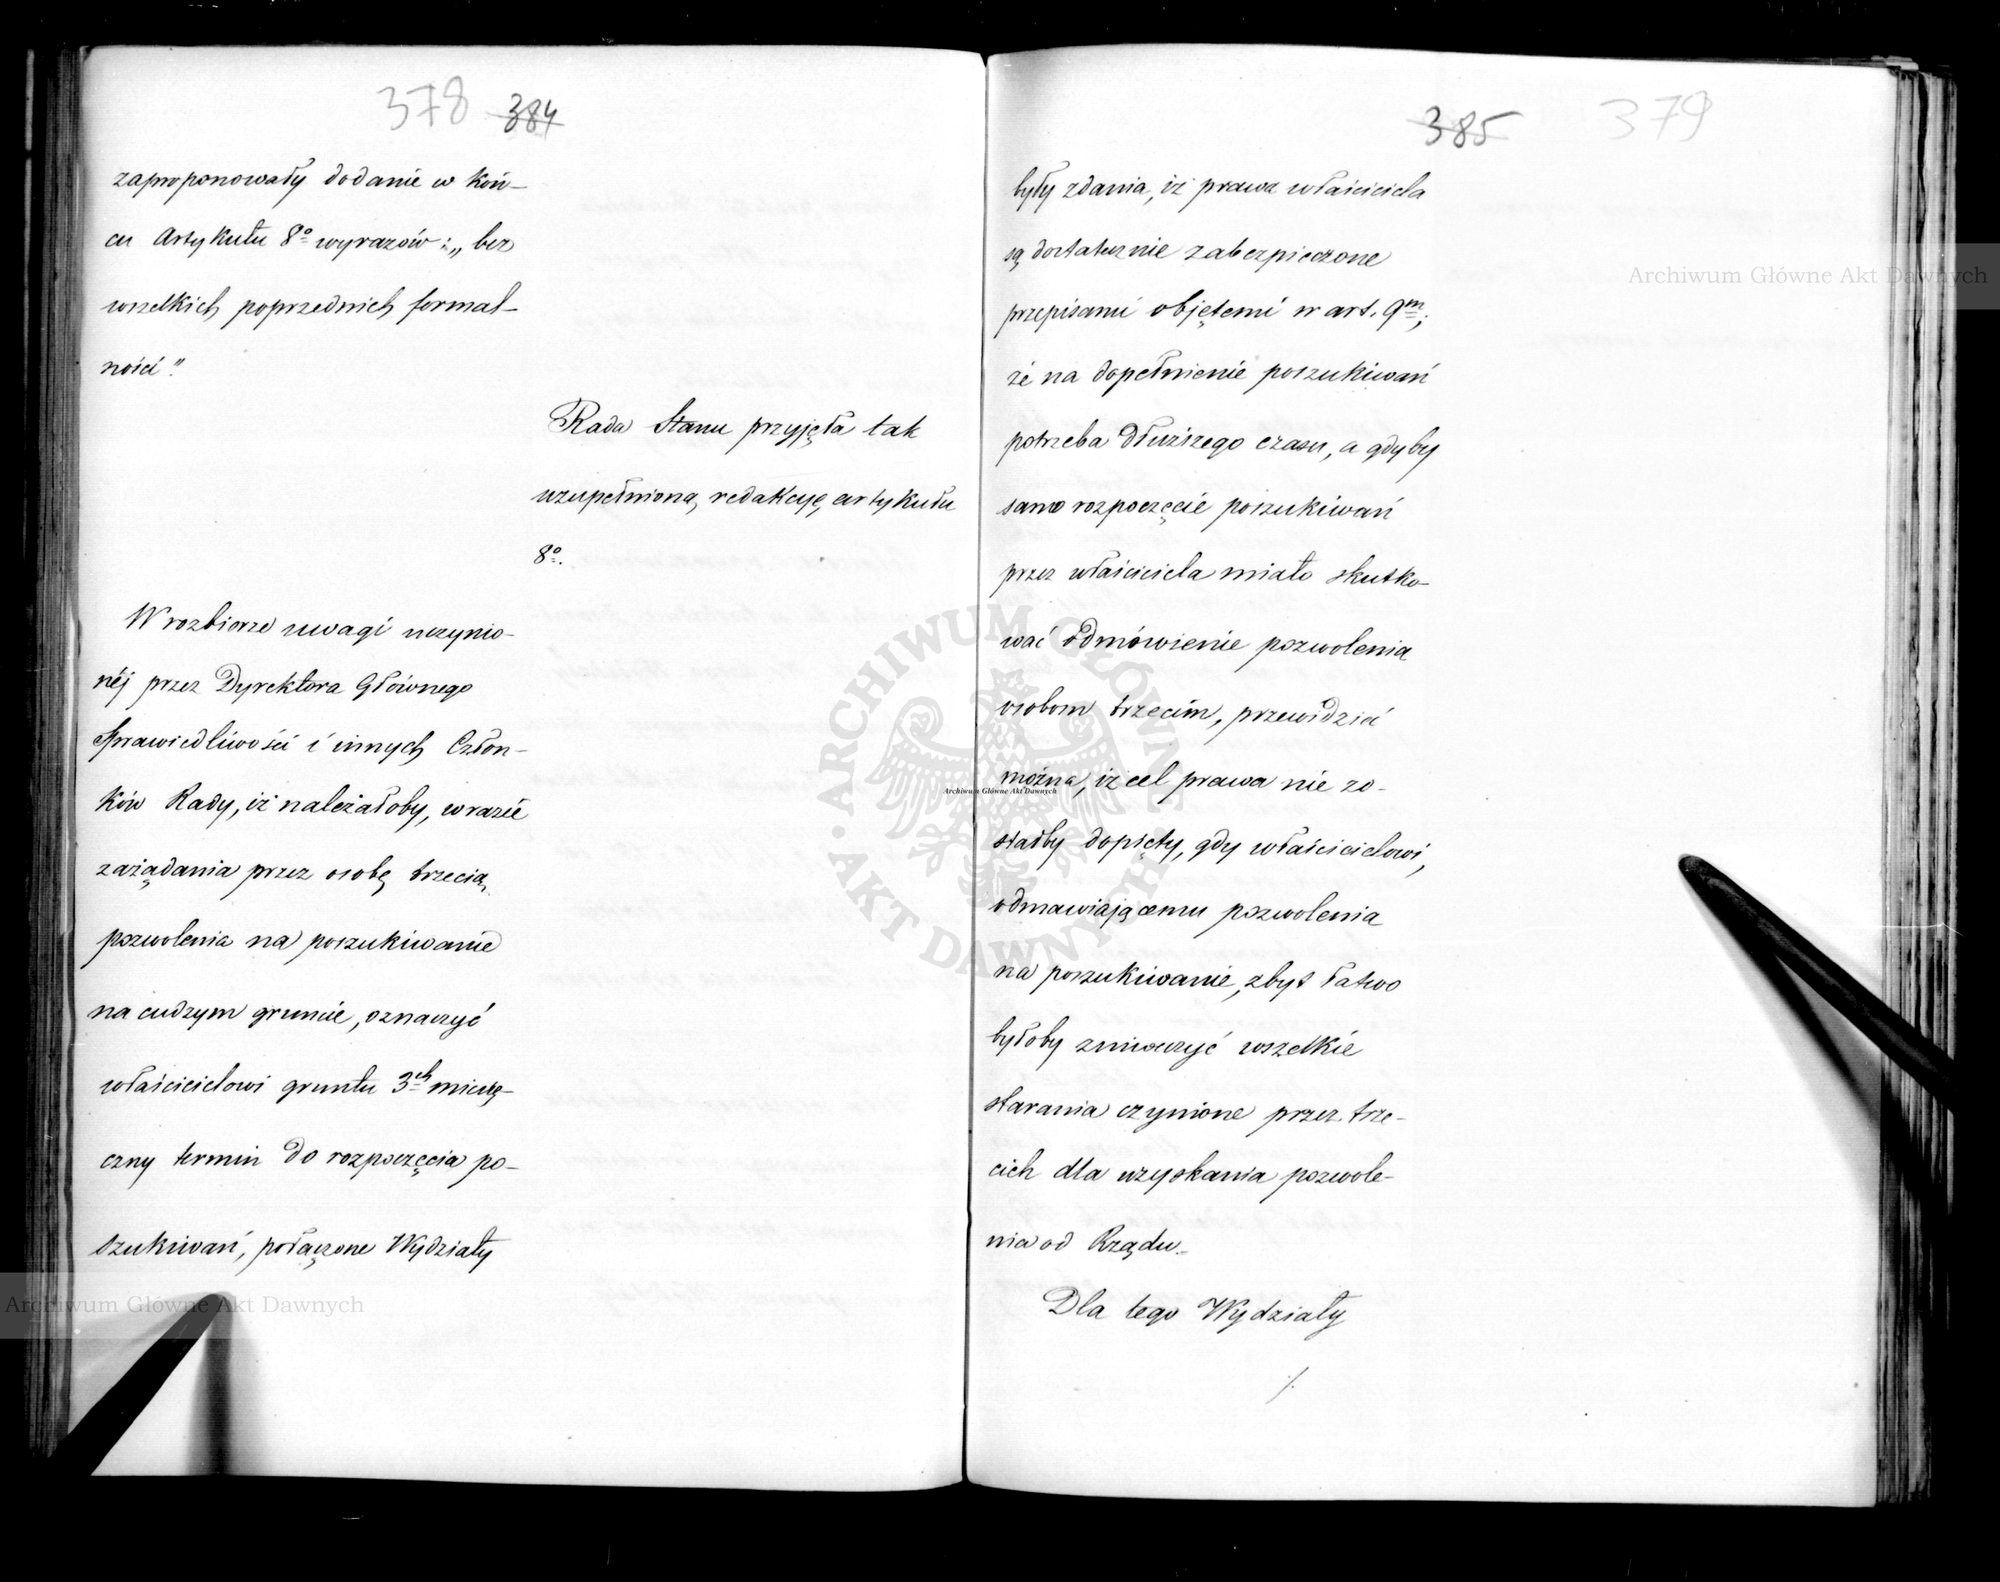 378 384
zaproponowały dodanie w koń-
cu Artykułu 8º wyrazów: „bez
wszelkich poprzednich formal-
ności"
Rada Stanu przyjęła tak
uzupełnioną redakcyę artykułu
8º.
W rozbiorze uwagi uczynio-
néj przez Dyrektora Głównego
Sprawiedliwości i innych Człon-
ków Rady, iż należałoby, w razie
zażądania przez osobę trzecią
pozwolenia na poszukiwanie
na cudzym gruncie, oznaczyć
właścicielowi gruntu 3ch miesię-
czny termin do rozpoczęcia po-
szukiwań, połączone Wydziały
385 379
były zdania, iż prawa właściciela
są dostatecznie zabezpieczone
przepisami objętemi w art. 9m;
że na dopełnienie poszukiwań
potrzeba dłuższego czasu, a gdyby
samo rozpoczęcie poszukiwań
przez właściciela miało skutko-
wać odmówienie pozwolenia
osobom trzecim, przewidzieć
można, iż cel prawa nie zo-
stałby dopięty, gdy właścicielowi,
odmawiającemu pozwolenia
na poszukiwanie, zbyt łatwo
byłoby zniweczyć wszelkie
starania czynione przez trze-
cich dla uzyskania pozwole-
nia od Rządu.
Dla tego Wydziały
./.
Archiwum Główne Akt Dawnych
Archiwum Główne Akt Dawnych
Archiwum Główne Akt Dawnych
ARCHIWUM GŁÓWNE AKT DAWNYCH